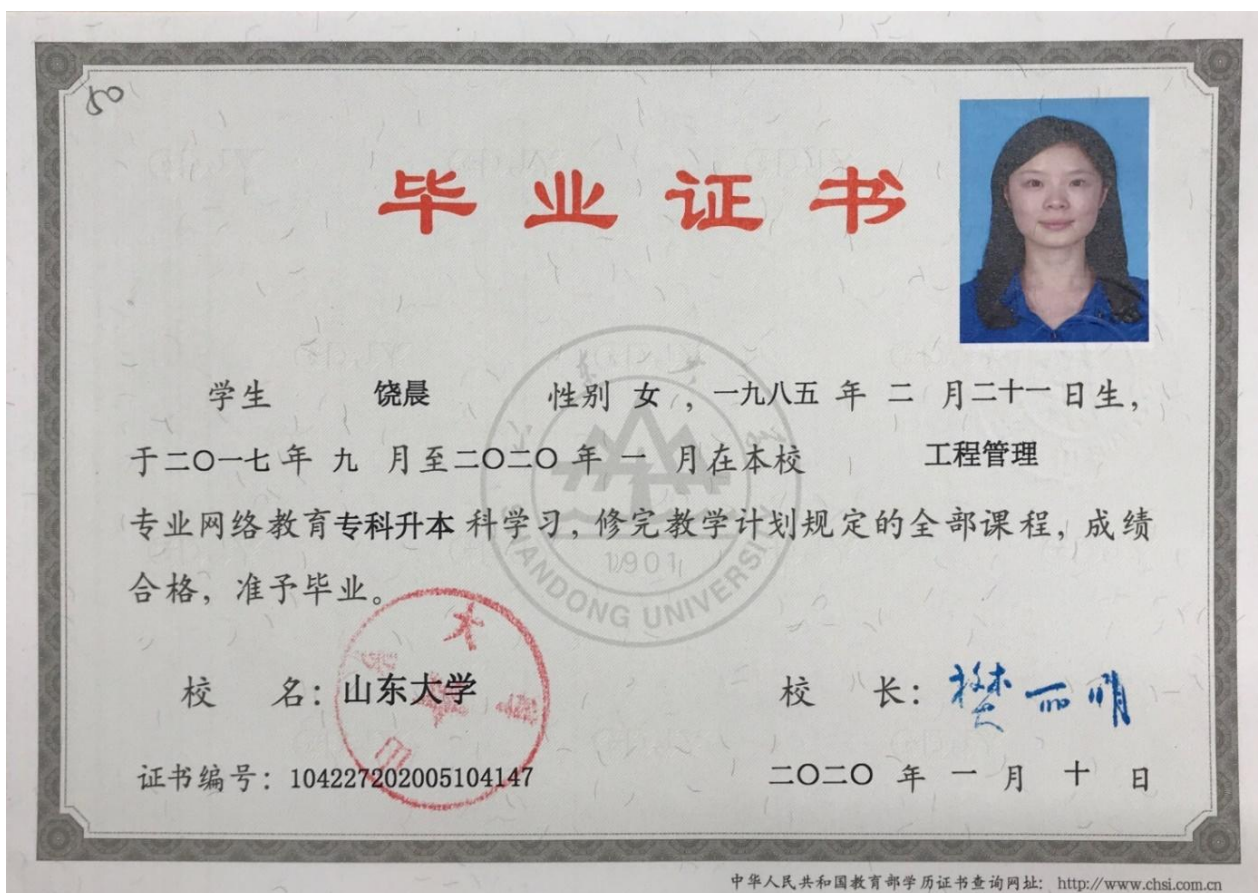 50
毕业证书
学生 饶晨 性别 女 ，一九八五 年 二 月二十一日生，
于二〇一七年 九 月至二〇二〇年 一 月在本校 工程管理
专业网络教育专科升本科学习，修完教学计划规定的全部课程，成绩
合格，准予毕业。
SHANDONG UNIVERSITY
1901
校 名：山东大学 校 长：樊丽明
证书编号：104227202005104147 二〇二〇 年 一 月 十 日
中华人民共和国教育部学历证书查询网址：http://www.chsi.com.cn